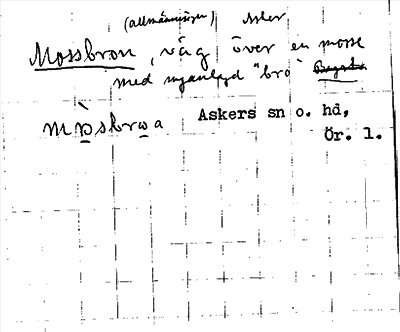 (allmänningen) Asker
Mossbron, väg över en mosse
med nyanlagd "bro"
mòsbrωa Askers sn o. hd,
Ör. l.